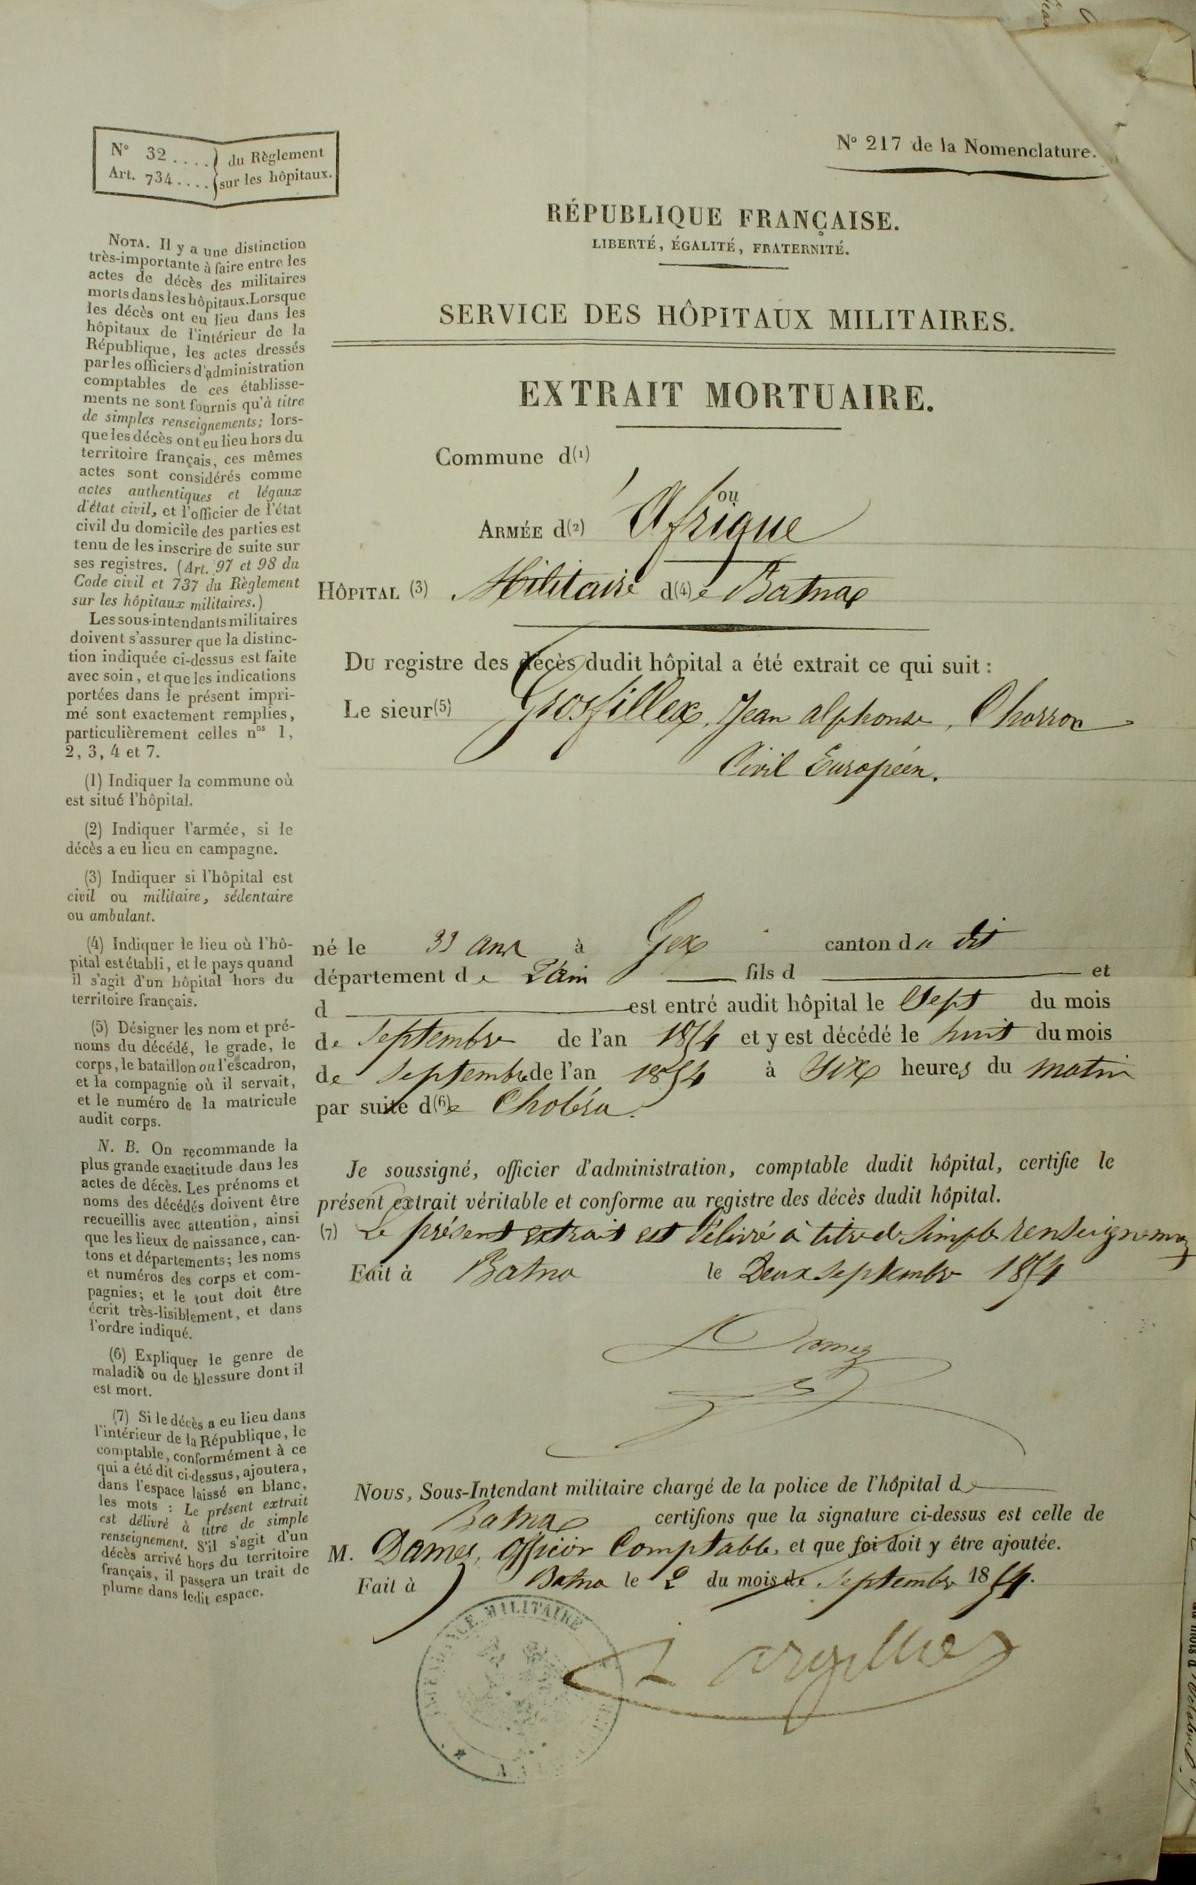 N° 32 .... } du Règlement
Art. 734 .... } sur les hôpitaux.
N° 217 de la Nomenclature.
RÉPUBLIQUE FRANÇAISE.
LIBERTÉ, ÉGALITÉ, FRATERNITÉ.
SERVICE DES HÔPITAUX MILITAIRES.
EXTRAIT MORTUAIRE.
Commune d(1)
ou
ARMÉE d(2) Afrique
HÔPITAL (3) Militaire d(4)e Batna
Du registre des décès dudit hôpital a été extrait ce qui suit :
Le sieur(5) Grosfillex, Jean alphonse, Charron
Civil Européen.
né le 33 ans à Gex canton du dit
département de L'ain fils d et
d est entré audit hôpital le Sept du mois
de Septembre de l'an 1854 et y est décédé le huit du mois
de Septembre de l'an 1854 à Six heures du matin
par suite d(6)e Choléra.
Je soussigné, officier d'administration, comptable dudit hôpital, certifie le
présent extrait véritable et conforme au registre des décès dudit hôpital.
(7) Le présent extrait est délivré à titre de Simple renseignement
Fait à Batna le Deux Septembre 1854
Damez
Nous, Sous-Intendant militaire chargé de la police de l'hôpital de
Batna certifions que la signature ci-dessus est celle de
M. Damez, officier Comptable, et que foi doit y être ajoutée.
Fait à Batna le 2 du mois de Septembre 1854.
INTENDANCE MILITAIRE
NOTA. Il y a une distinction
très-importante à faire entre les
actes de décès des militaires
morts dans les hôpitaux. Lorsque
les décès ont eu lieu dans les
hôpitaux de l'intérieur de la
République, les actes dressés
par les officiers d'administration
comptables de ces établisse-
ments ne sont fournis qu'à titre
de simples renseignements; lors-
que les décès ont eu lieu hors du
territoire français, ces mêmes
actes sont considérés comme
actes authentiques et légaux
d'état civil, et l'officier de l'état
civil du domicile des parties est
tenu de les inscrire de suite sur
ses registres. (Art. 97 et 98 du
Code civil et 737 du Règlement
sur les hôpitaux militaires.)
Les sous-intendants militaires
doivent s'assurer que la distinc-
tion indiquée ci-dessus est faite
avec soin, et que les indications
portées dans le présent impri-
mé sont exactement remplies,
particulièrement celles nos 1,
2, 3, 4 et 7.
(1) Indiquer la commune où
est situé l'hôpital.
(2) Indiquer l'armée, si le
décès a eu lieu en campagne.
(3) Indiquer si l'hôpital est
civil ou militaire, sédentaire
ou ambulant.
(4) Indiquer le lieu où l'hô-
pital est établi, et le pays quand
il s'agit d'un hôpital hors du
territoire français.
(5) Désigner les nom et pré-
noms du décédé, le grade, le
corps, le bataillon ou l'escadron,
et la compagnie où il servait,
et le numéro de la matricule
audit corps.
N. B. On recommande la
plus grande exactitude dans les
actes de décès. Les prénoms et
noms des décédés doivent être
recueillis avec attention, ainsi
que les lieux de naissance, can-
tons et départements; les noms
et numéros des corps et com-
pagnies; et le tout doit être
écrit très-lisiblement, et dans
l'ordre indiqué.
(6) Expliquer le genre de
maladie ou de blessure dont il
est mort.
(7) Si le décès a eu lieu dans
l'intérieur de la République, le
comptable, conformément à ce
qui a été dit ci-dessus, ajoutera,
dans l'espace laissé en blanc,
les mots : Le présent extrait
est délivré à titre de simple
renseignement. S'il s'agit d'un
décès arrivé hors du territoire
français, il passera un trait de
plume dans ledit espace.